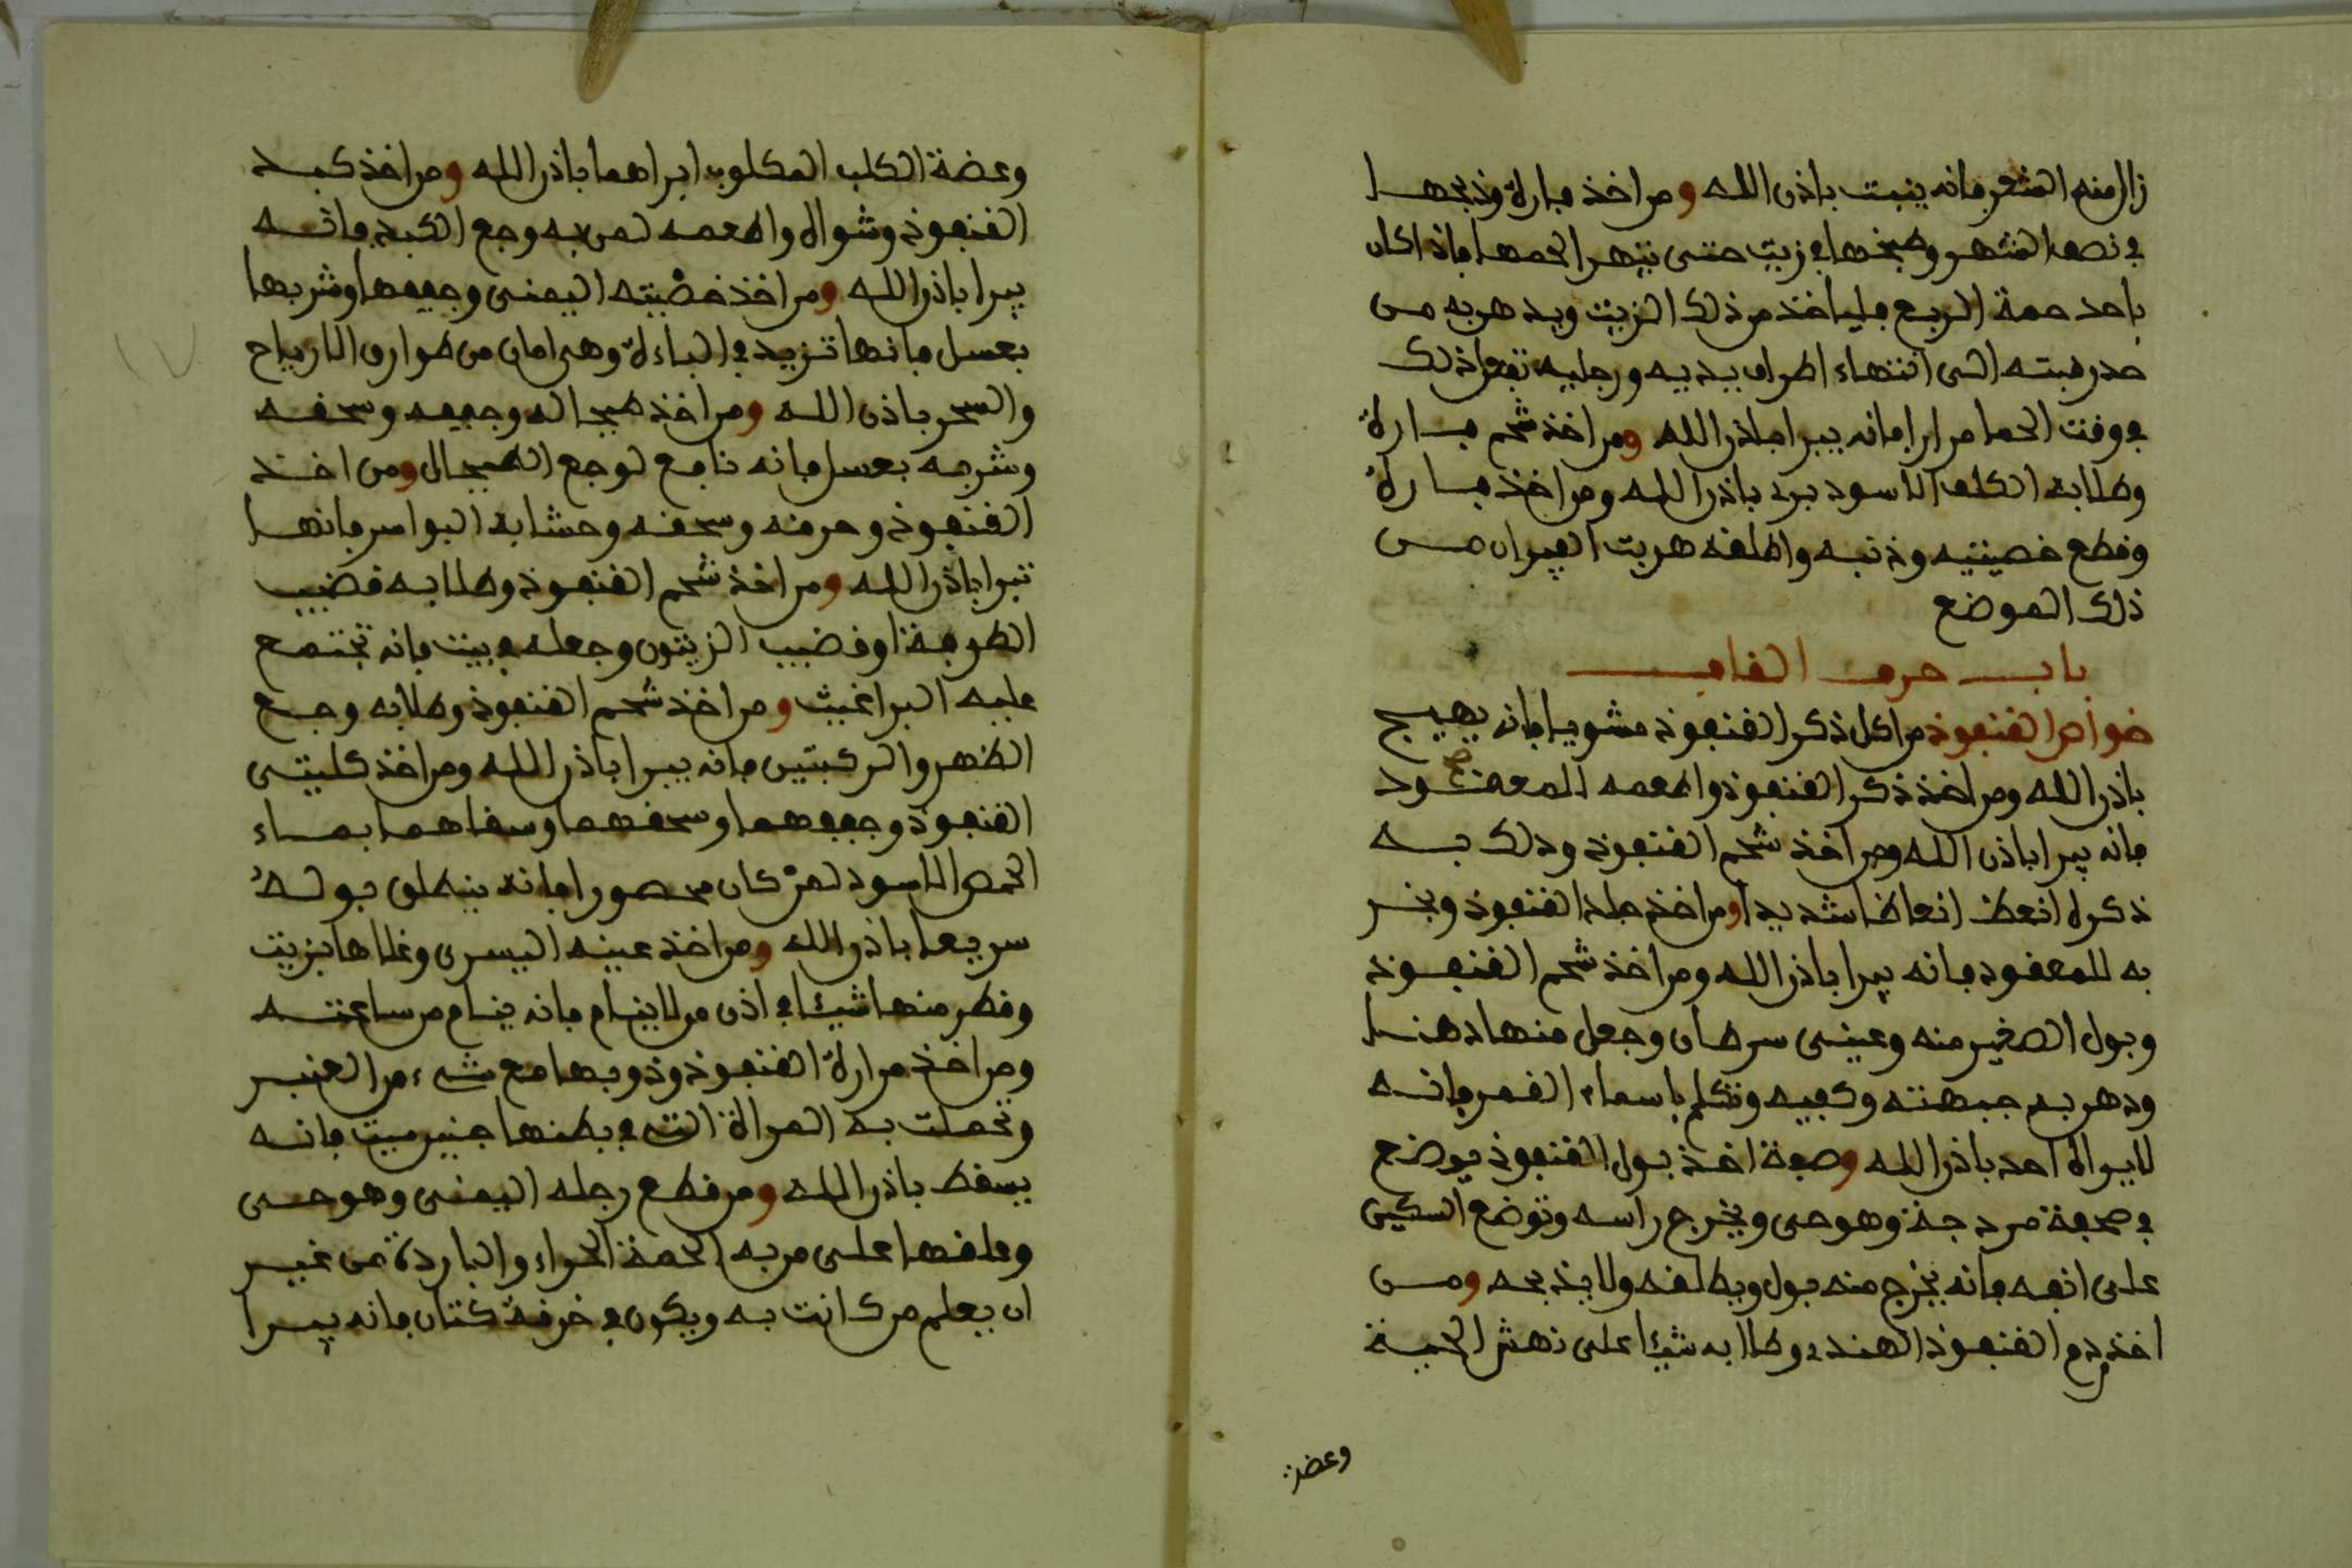 زال منه الشعر فانه ينبت باذن الله ومن اخذ فارة وذبحها
في نصف الشهر وطبخها في زيت حتى يتهرا لحمها فاذا كان
باحد حمة الربع فلياخذ من ذلك الزيت ويدهن به من
حد رقبته الى انتهاء اطراف يديه ورجليه تفعل ذلك
في وقت الحما مرارا فانه يبرا باذن الله ومن اخذ شحم فارة
وطلا به الكلف الاسود برئ باذن الله ومن اخذ فارة
وقطع خصيتيه وذنبه واطلقه هربت الفيران من
ذلك الموضع
باب حرف القاف
خواص القنفوذ من اكل ذكر القنفوذ مشويا فانه يهيج
باذن الله ومن اخذ ذكر القنفوذ واطعمه للمعقود
فانه يبرا باذن الله ومن اخذ شحم القنفوذ ودلك به
ذكره انعظ انعاظا شديدا ومن اخذ جلد القنفوذ وبخر
به للمعقود فانه يبرا باذن الله ومن اخذ شحم القنفوذ
وبول الصغير منه وعيني سرطان وجعل منها دهنا
ودهن به جبهته وكفيه وتكلم باسماء القمر فانه
لا يراه احد باذن الله وصفة اخذ بول القنفوذ يوضع
في صحفة مردجة وهو حي ويخرج راسه وتوضع السكين
على انفه فانه يخرج منه بول ويطلقه ولا يذبحه ومن
اخذ دم القنفوذ الهندي وطلا به شيئا على نهش الحية
وعضة
وعضة الكلب المكلوب ابراهما باذن الله ومن اخذ كبد
القنفوذ وشواه واطعمه لمن به وجع الكبد فانه
يبرا باذن الله ومن اخذ خصيته اليمنى وجففها وشربها
بعسل فانها تزيد في الباءة وهي امان من طوارق الارياح
والسحر باذن الله ومن اخذ طيحاله وجففه وسحقه
وشربه بعسل فانه نافع لوجع الطيحال ومن اخذ
القنفوذ وحرقه وسحقه وحشا به البواسر فانها
تبرا باذن الله ومن اخذ شحم القنفوذ وطلا به قضيب
الطرفة او قضيب الزيتون وجعله في بيت فانه تجتمع
عليه البراغيث ومن اخذ شحم القنفوذ وطلا به وجع
الظهر والركبتين فانه يبرا باذن الله ومن اخذ كليتي
القنفوذ وجففهما وسحقهما وسقاهما بماء
الحمص الاسود لمن كان محصورا فانه ينطلق بوله
سريعا باذن الله ومن اخذ عينه اليسرى وغلاها بزيت
وقطر منها شيئا في اذن من لا ينام فانه ينام من ساعته
ومن اخذ مرارة القنفوذ وذوبها مع شيء من العنبر
وتحملت به المراة التي في بطنها جنين ميت فانه
يسقط باذن الله ومن قطع رجله اليمنى وهو حي
وعلقها على من به الحمة الحراء والباردة من غير
ان يعلم من كانت به ويكون في خرقة كتان فانه يبرا